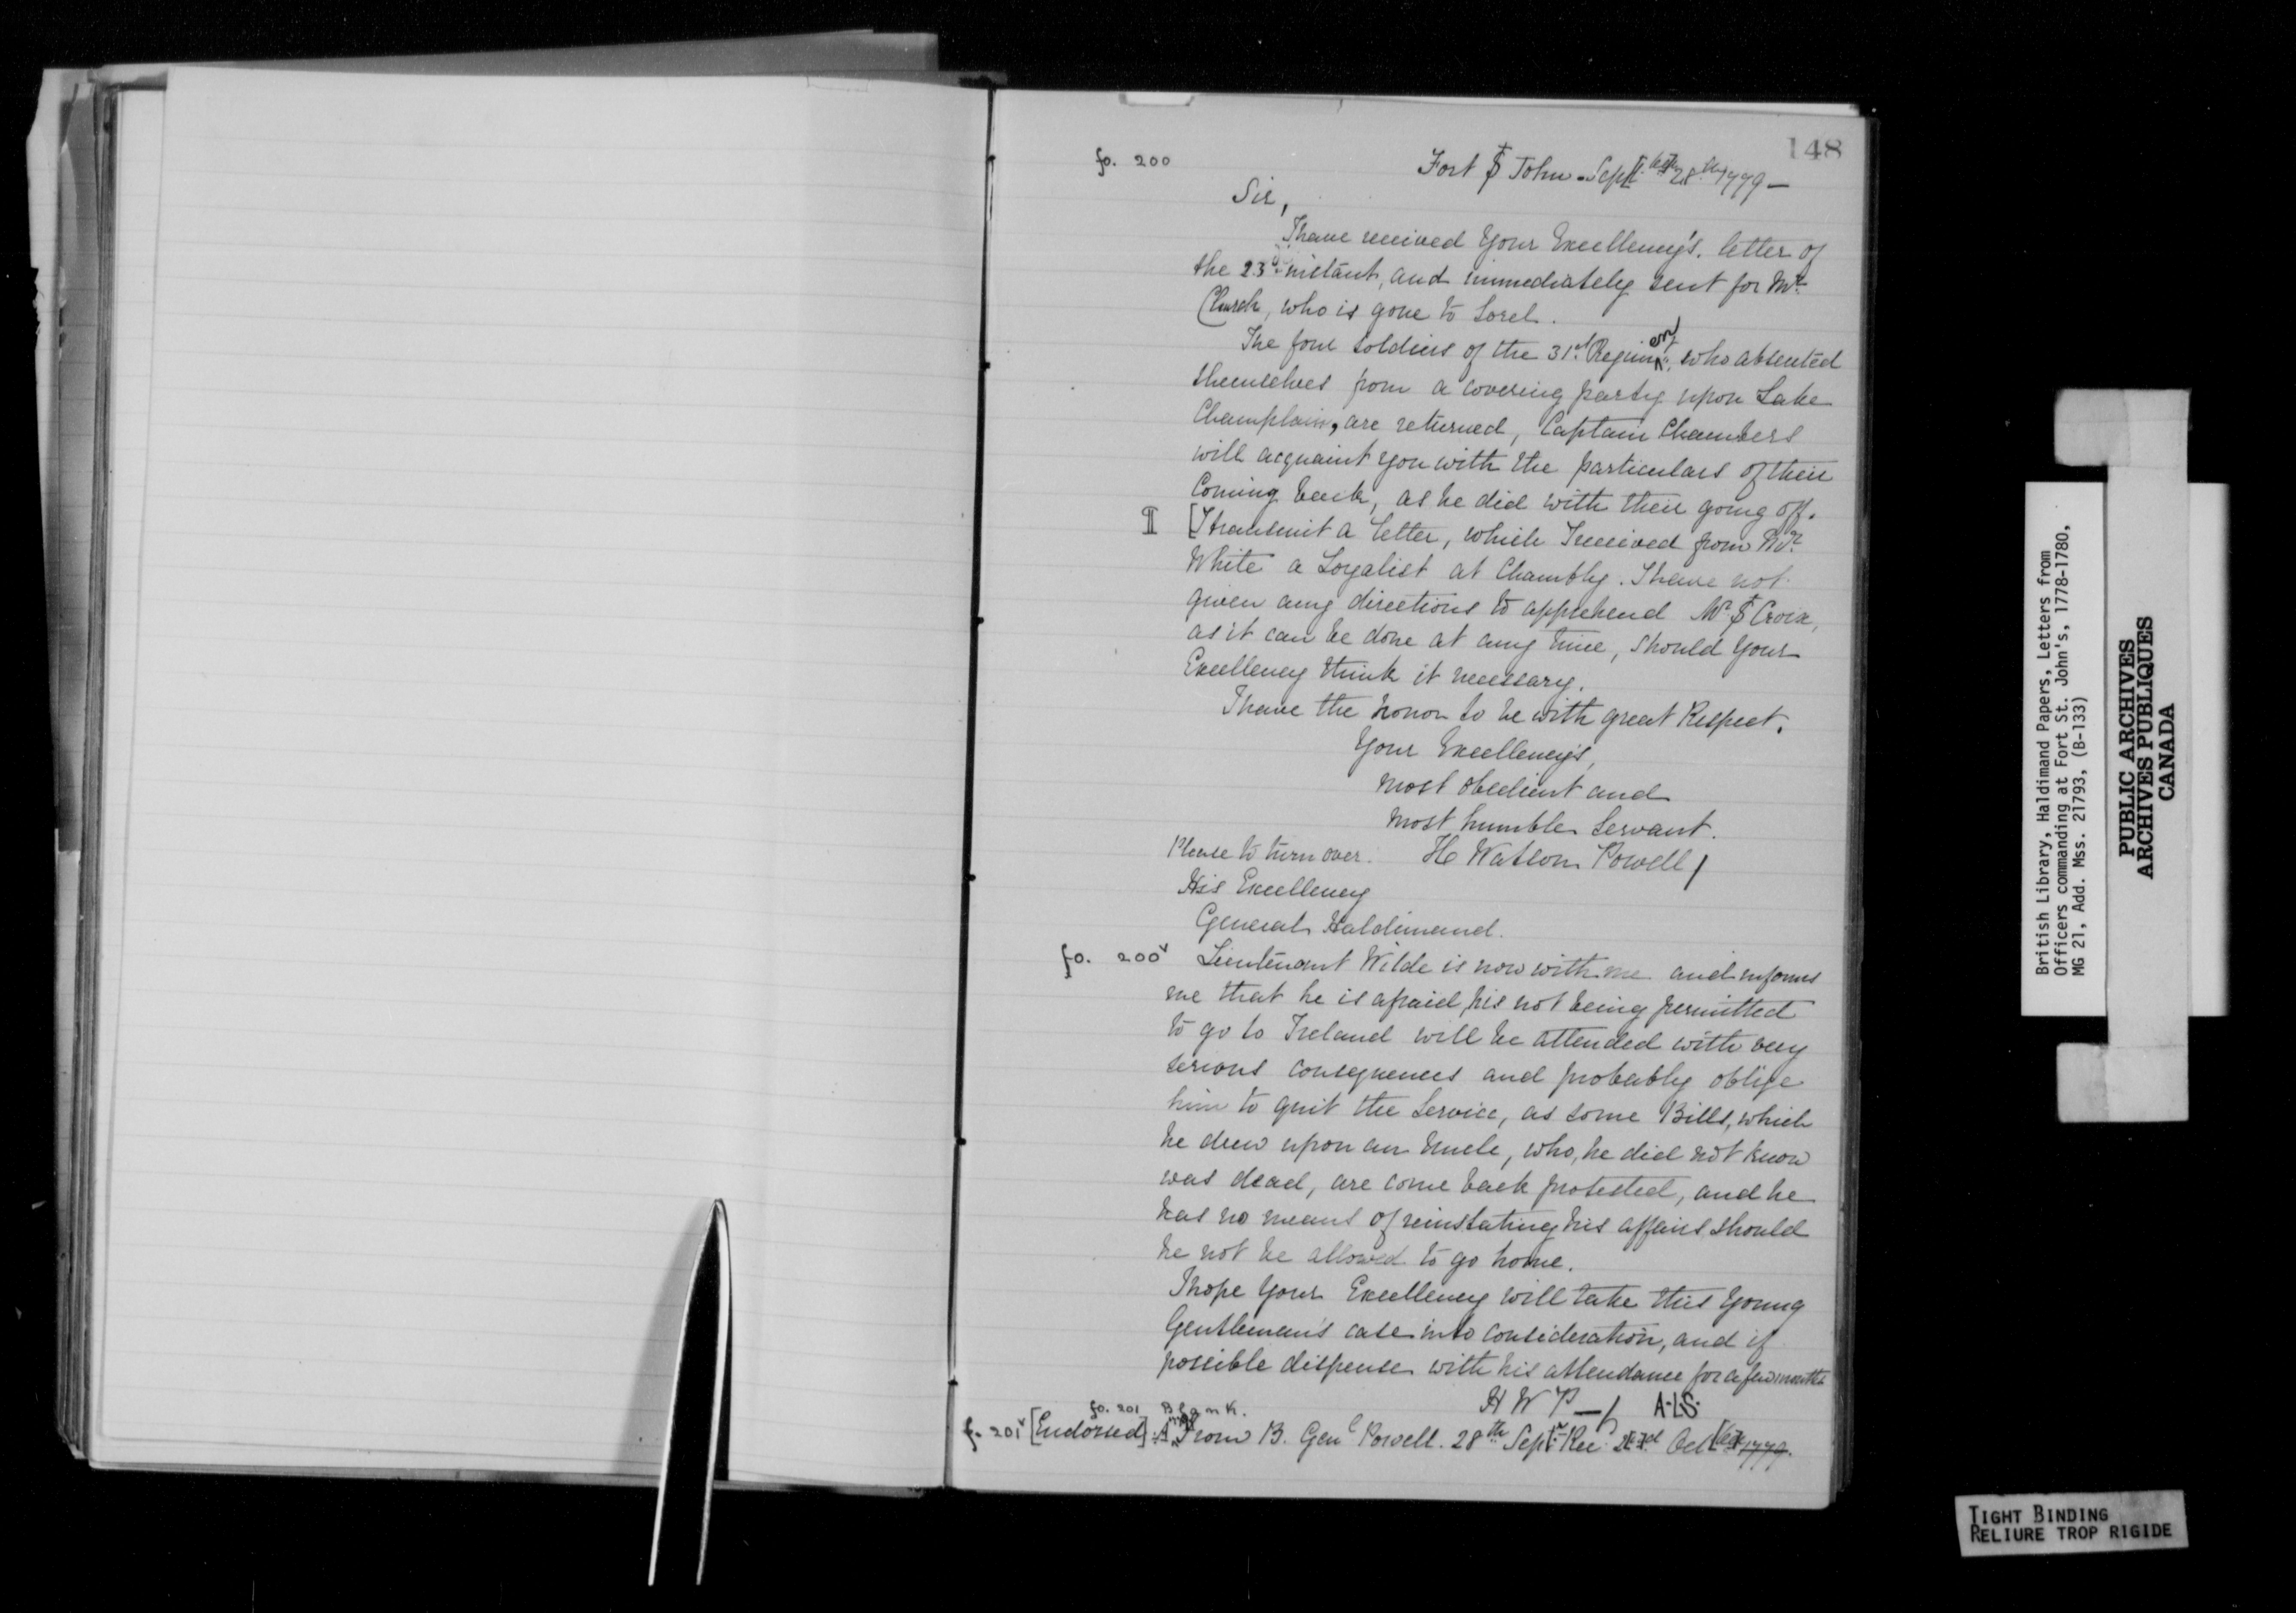 148
fo. 200
Fort St John Sept 28th 1779 —
Sir,
I have received Your Excellency's letter of
the 23d instant, and immediately sent for Mr
Church, who is gone to Sorel.
The four soldiers of the 31st Regimt, who absented
themselves from a covering party upon Lake
Champlain, are returned, Captain Chambers
will acquaint you with the particulars of their
Coming back, as he did with their going off.
¶ [I transmit a letter, which I received from Mr
White a Loyalist at Chambly. I have not
given any directions to apprehend Mr St Croix,
as it can be done at any time, should Your
Excellency think it necessary.
I have the honor to be with great Respect,
Your Excellency's,
most obedient and
most humble Servant.
Please to turn over. H Watson Powell
His Excellency
General Haldimand.
fo. 200v Lieutenant Wilde is now with me and informs
me that he is afraid, his not being permitted
to go to Ireland will be attended with very
serious consequences and probably oblige
him to quit the Service, as some Bills, which
he drew upon an Uncle, who, he did not know
was dead, are come back protested, and he
has no means of reinstating his affairs should
he not be allowed to go home.
I hope Your Excellency will take this Young
Gentleman's case into consideration, and if
possible dispense with his attendance for a few months
H W P — A.L.S.
fo. 201 Blank.
f. 201v [Endorsed] From B. Genl Powell. 28th Sept Rec 2d Oct 1779.
British Library, Haldimand Papers, Letters from
Officers commanding at Fort St. John's, 1778-1780,
MG 21, Add. Mss. 21793, (B-133)
PUBLIC ARCHIVES
ARCHIVES PUBLIQUES
CANADA
TIGHT BINDING
RELIURE TROP RIGIDE